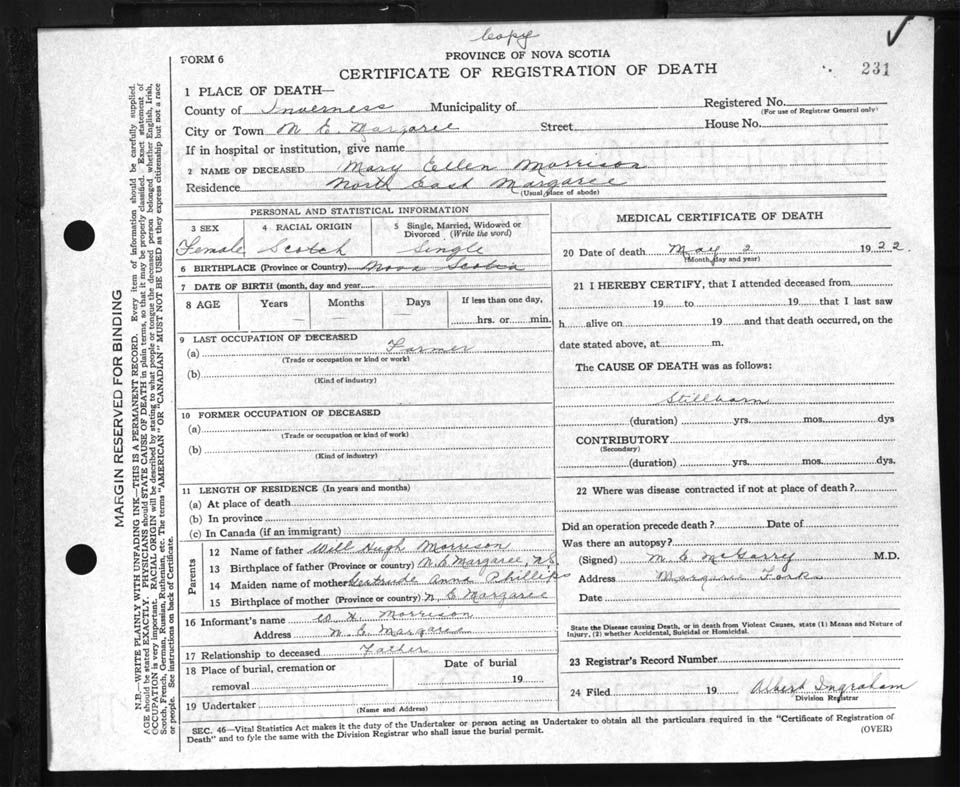 Copy
FORM 6
PROVINCE OF NOVA SCOTIA
CERTIFICATE OF REGISTRATION OF DEATH
231
1 PLACE OF DEATH—
County of Inverness Municipality of Registered No.
(For use of Registrar General only)
City or Town N E. Margaree Street House No.
If in hospital or institution, give name
2 NAME OF DECEASED Mary Ellen Morrison
Residence North East Margaree
(Usual place of abode)
PERSONAL AND STATISTICAL INFORMATION
3 SEX 4 RACIAL ORIGIN 5 Single, Married, Widowed or
Divorced (Write the word)
Female Scotch Single
6 BIRTHPLACE (Province or Country) Nova Scotia
7 DATE OF BIRTH (month, day and year)
8 AGE Years Months Days If less than one day,
— — — hrs. or min.
9 LAST OCCUPATION OF DECEASED
(a) Farmer
(Trade or occupation or kind or work)
(b)
(Kind of industry)
10 FORMER OCCUPATION OF DECEASED
(a)
(Trade or occupation or kind of work)
(b)
(Kind of industry)
11 LENGTH OF RESIDENCE (In years and months)
(a) At place of death
(b) In province
(c) In Canada (if an immigrant)
Parents
12 Name of father Will Hugh Morrison
13 Birthplace of father (Province or country) N. E Margaree, N.S.
14 Maiden name of mother Gertrude Anna Phillips
15 Birthplace of mother (Province or country) N. E Margaree
16 Informant's name W. H. Morrison
Address N. E Margaree
17 Relationship to deceased Father
18 Place of burial, cremation or Date of burial
removal 19
19 Undertaker
(Name and Address)
MEDICAL CERTIFICATE OF DEATH
20 Date of death May 2 1922.
(Month, day and year)
21 I HEREBY CERTIFY, that I attended deceased from
19 to 19 that I last saw
h alive on 19 and that death occurred, on the
date stated above, at m.
The CAUSE OF DEATH was as follows:
Stillborn
(duration) yrs. mos. dys
CONTRIBUTORY
(Secondary)
(duration) yrs. mos. dys.
22 Where was disease contracted if not at place of death?
Did an operation precede death? Date of
Was there an autopsy?
(Signed) M. E. McGarry M.D.
Address Margaree Forks
Date
State the Disease causing Death, or in death from Violent Causes, state (1) Means and Nature of
Injury, (2) whether Accidental, Suicidal or Homicidal.
23 Registrar's Record Number
24 Filed 19 Albert Ingraham
Division Registrar
SEC. 46—Vital Statistics Act makes it the duty of the Undertaker or person acting as Undertaker to obtain all the particulars required in the "Certificate of Registration of
Death" and to fyle the same with the Division Registrar who shall issue the burial permit. (OVER)
MARGIN RESERVED FOR BINDING
N.B.—WRITE PLAINLY WITH UNFADING INK—THIS IS A PERMANENT RECORD. Every item of information should be carefully supplied.
AGE should be stated EXACTLY. PHYSICIANS should STATE CAUSE OF DEATH in plain terms, so that it may be properly classified. Exact statement of
OCCUPATION is very important. RACIAL ORIGIN will be described by stating to what people or tongue the deceased person belonged whether English, Irish,
Scotch, French, German, Russian, Ruthenian, etc. The terms "AMERICAN" OR "CANADIAN" MUST NOT BE USED as they express citizenship but not a race
or people. See instructions on back of Certificate.